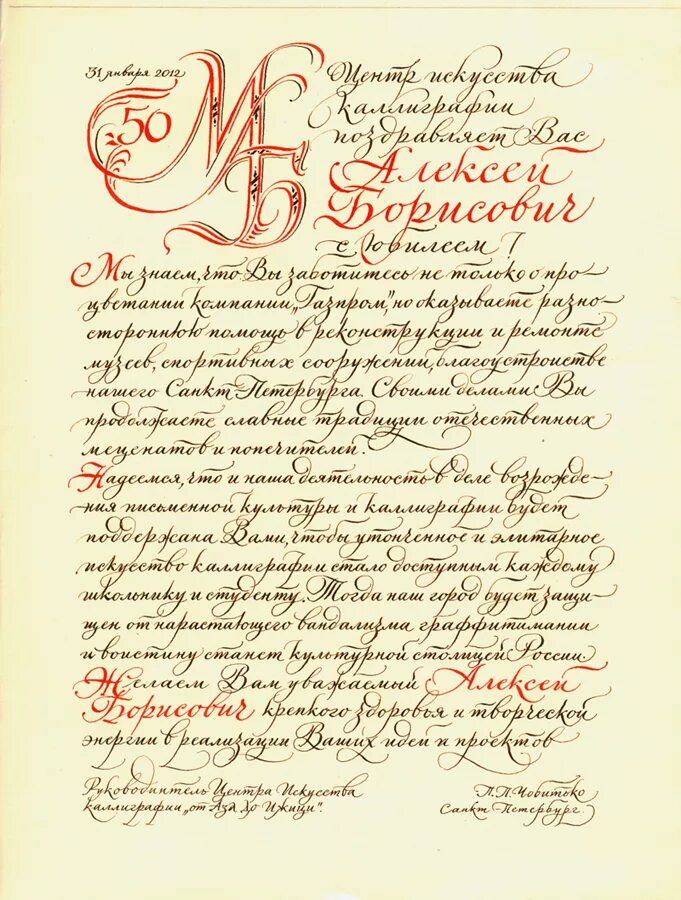 31 января 2012
50
МАБ
Центр искусства
каллиграфии
поздравляет Вас
Алексей
Борисович
с Юбилеем!
Мы знаем, что Вы заботитесь не только о про-
цветании компании „Газпром", но оказываете разно-
стороннюю помощь в реконструкции и ремонте
музеев, спортивных сооружений, благоустройстве
нашего Санкт-Петербурга. Своими делами Вы
продолжаете славные традиции отечественных
меценатов и попечителей.
Надеемся, что и наша деятельность в деле возрожде-
ния письменной культуры и каллиграфии будет
поддержана Вами, чтобы утонченное и элитарное
искусство каллиграфии стало доступным каждому
школьнику и студенту. Тогда наш город будет защи-
щен от нарастающего вандализма граффитимании
и воистину станет культурной столицей России.
Желаем Вам уважаемый Алексей
Борисович крепкого здоровья и творческой
энергии в реализации Ваших идей и проектов
Руководитель Центра Искусства
каллиграфии „от Аза до Ижицы".
П.П. Чобитько
Санкт-Петербург.